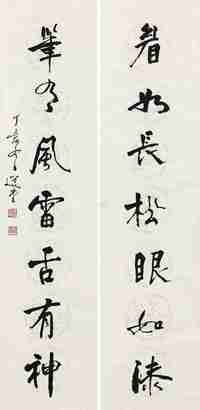 眉如長松眼如漆
筆有風雷舌有神
丁亥選堂